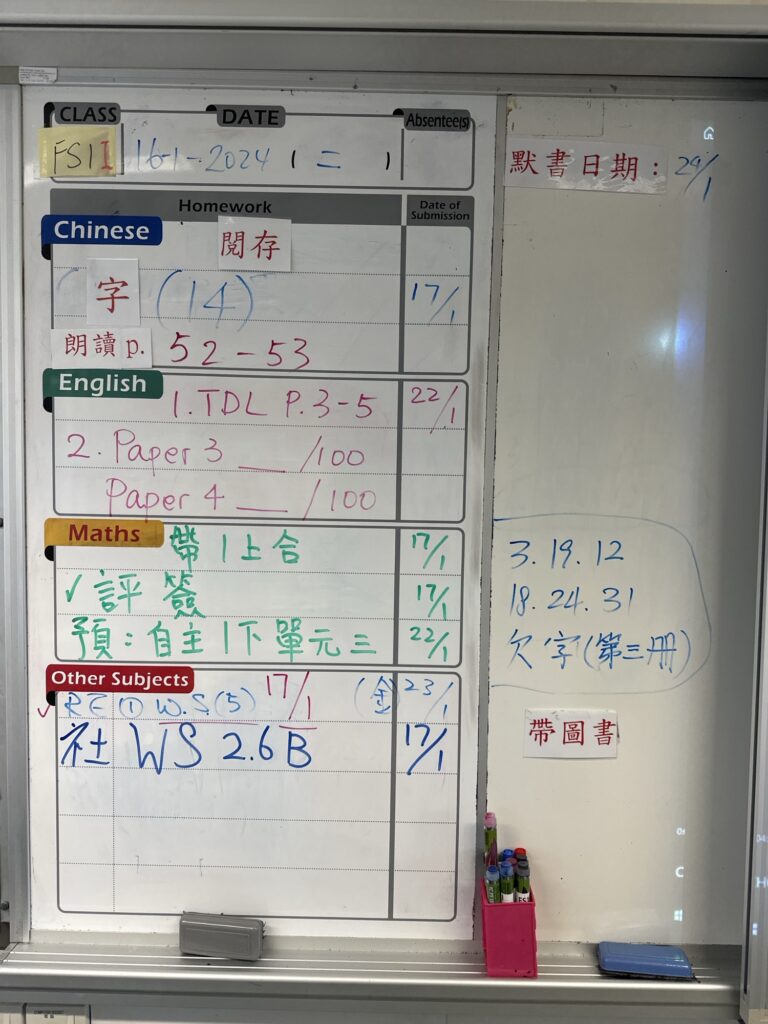 CLASS DATE Absentee(s)
FS1I 16-1-2024 ( 二 )
Homework Date of Submission
Chinese
閱存
字 (14) 17/1
朗讀 p. 52-53
English
1. TDL P.3-5 22/1
2. Paper 3 __ /100
Paper 4 __ /100
Maths
帶 1上合 17/1
✓評 簽 17/1
預:自主1下單元三 22/1
Other Subjects
✓ RE ① W.S.(5) 17/1 (金) 23/1
社 WS 2.6B 17/1
默書日期: 29/1
3. 19. 12
18. 24. 31
欠字(第三冊)
帶圖書